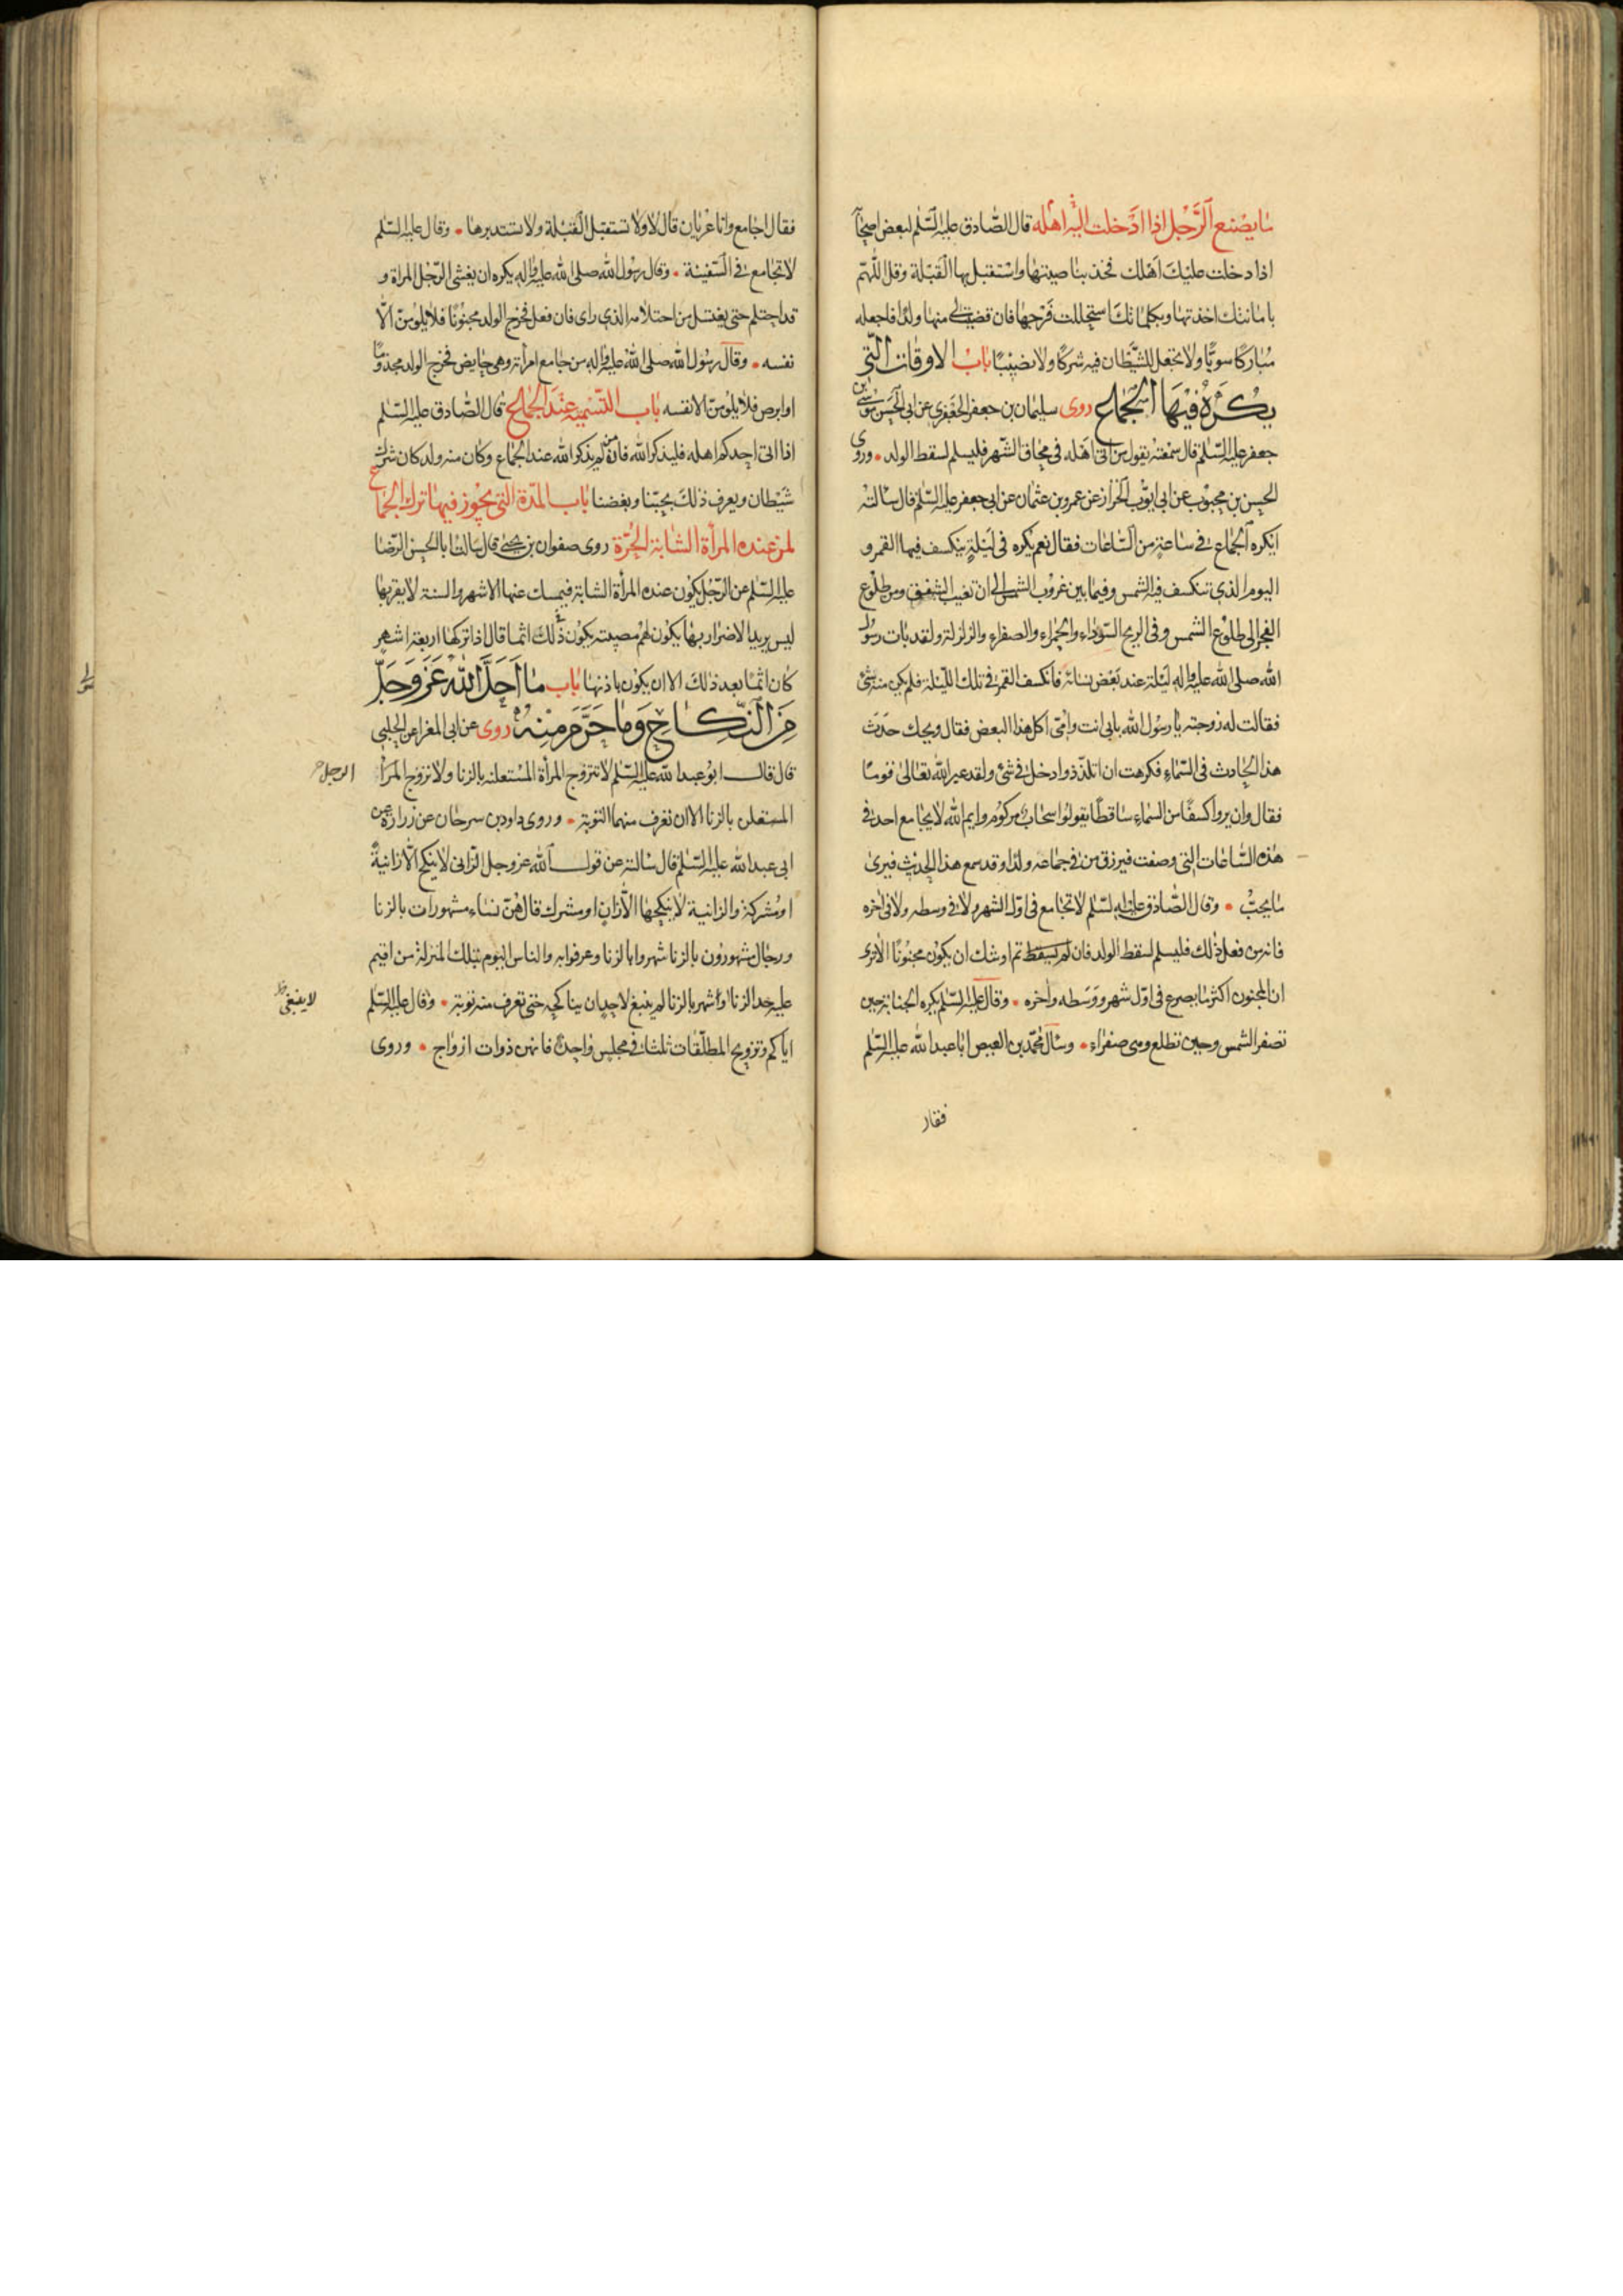 ما يصنع الرجل اذا ادخلت اليه اهله قال الصادق عليه السلم لبعض اصحابه
اذا دخلت عليك اهلك فخذ بناصيتها واستقبل بها القبلة وقل اللهم
بامانتك اخذتها وبكلماتك استحللت فرجها فان قضيت لي منها ولدا فاجعله
مباركا سويا ولا تجعل للشيطان فيه شركا ولا نصيبا باب الاوقات التي
يكره فيها الجماع روى سليمان بن جعفر الجعفري عن ابي الحسن موسى بن
جعفر عليه السلم قال سمعته يقول من اتى اهله في محاق الشهر فليسلم لسقط الولد وروى
الحسن بن محبوب عن ابي ايوب الخراز عن عمرو بن عثمان عن ابي جعفر عليه السلم قال سالته
ايكره الجماع في ساعة من الساعات فقال نعم يكره في ليلة ينكسف فيها القمر و
اليوم الذي تنكسف فيه الشمس وفيما بين غروب الشمس الى ان تغيب الشفق ومن طلوع
الفجر الى طلوع الشمس وفي الريح السوداء والحمراء والصفراء والزلزلة ولقد بات رسول
الله صلى الله عليه واله ليلة عند بعض نسائه فانكسف القمر في تلك الليلة فلم يكن منه شئ
فقالت له زوجته يا رسول الله بابي انت وامي اكل هذا البعض فقال ويحك حدث
هذا الحادث في السماء فكرهت ان اتلذذ وادخل في شئ ولقد عير الله تعالى قوما
فقال وان يروا كسفا من السماء ساقطا يقولوا سحاب مركوم وايم الله لا يجامع احد في
هذه الساعات التي وصفت فيرزق من في جماعه ولدا وقد سمع هذا الحديث فيرى
ما يحب وقال الصادق عليه السلم لا تجامع في اول الشهر ولا في وسطه ولا في اخره
فانه من فعل ذلك فليسلم لسقط الولد فان لم يسقط تم اوشك ان يكون مجنونا الا ترى
ان المجنون اكثر ما يصرع في اول شهر ووسطه واخره وقال عليه السلم يكره الجنابة حين
تصفر الشمس وحين تطلع وهى صفراء وسال محمد بن العيص ابا عبد الله عليه السلم
فقال
فقال اجامع وانا عريان قال لا ولا تستقبل القبلة ولا تستدبرها وقال عليه السلم
لا تجامع في السفينة وقال رسول الله صلى الله عليه واله يكره ان يغشى الرجل المراة و
قد احتلم حتى يغتسل من احتلامه الذي راى فان فعل فخرج الولد مجنونا فلا يلومن الا
نفسه وقال رسول الله صلى الله عليه واله من جامع امراته وهي حايض فخرج الولد مجذوما
او ابرص فلا يلومن الا نفسه باب التسمية عند الجماع قال الصادق عليه السلم
اذا اتى احدكم اهله فليذكر الله فانه من لم يذكر الله عند الجماع وكان منه ولد كان شرك
شيطان ويعرف ذلك بحبنا وبغضنا باب المدة التي يجوز فيها ترك الجماع
لمن عنده المرأة الشابة الحرة روى صفوان بن يحيى قال سالت ابا الحسن الرضا
عليه السلم عن الرجل يكون عنده المرأة الشابة فيمسك عنها الاشهر والسنة لا يقربها
ليس يريد الاضرار بها يكون لهم مصيبته يكون في ذلك اثما قال اذا تركها اربعة اشهر
كان اثما بعد ذلك الا ان يكون باذنها باب ما احل الله عز وجل
من النكاح وما حرم منه روى عن ابي المغرا عن الحلبي
قال قال ابو عبد الله عليه السلم لا تتزوج المرأة المستعلنة بالزنا ولا تزوج المرأ
الرجل
المستعلن بالزنا الا ان تعرف منهما التوبة وروى داود بن سرحان عن زرارة عن
ابي عبد الله عليه السلم قال سالته عن قول الله عز وجل الزاني لا ينكح الا زانية
او مشركة والزانية لا ينكحها الا زان او مشرك قال هن نساء مشهورات بالزنا
ورجال مشهورون بالزنا شهروا بالزنا وعرفوا به والناس اليوم بتلك المنزلة من اقيم
عليه حد الزنا او شهر بالزنا لم ينبغ لاحد ان يناكحه حتى تعرف منه توبة وقال عليه السلم
لا ينبغي
اياكم وتزويج المطلقات ثلثا في مجلس واحد فانهن ذوات ازواج وروى